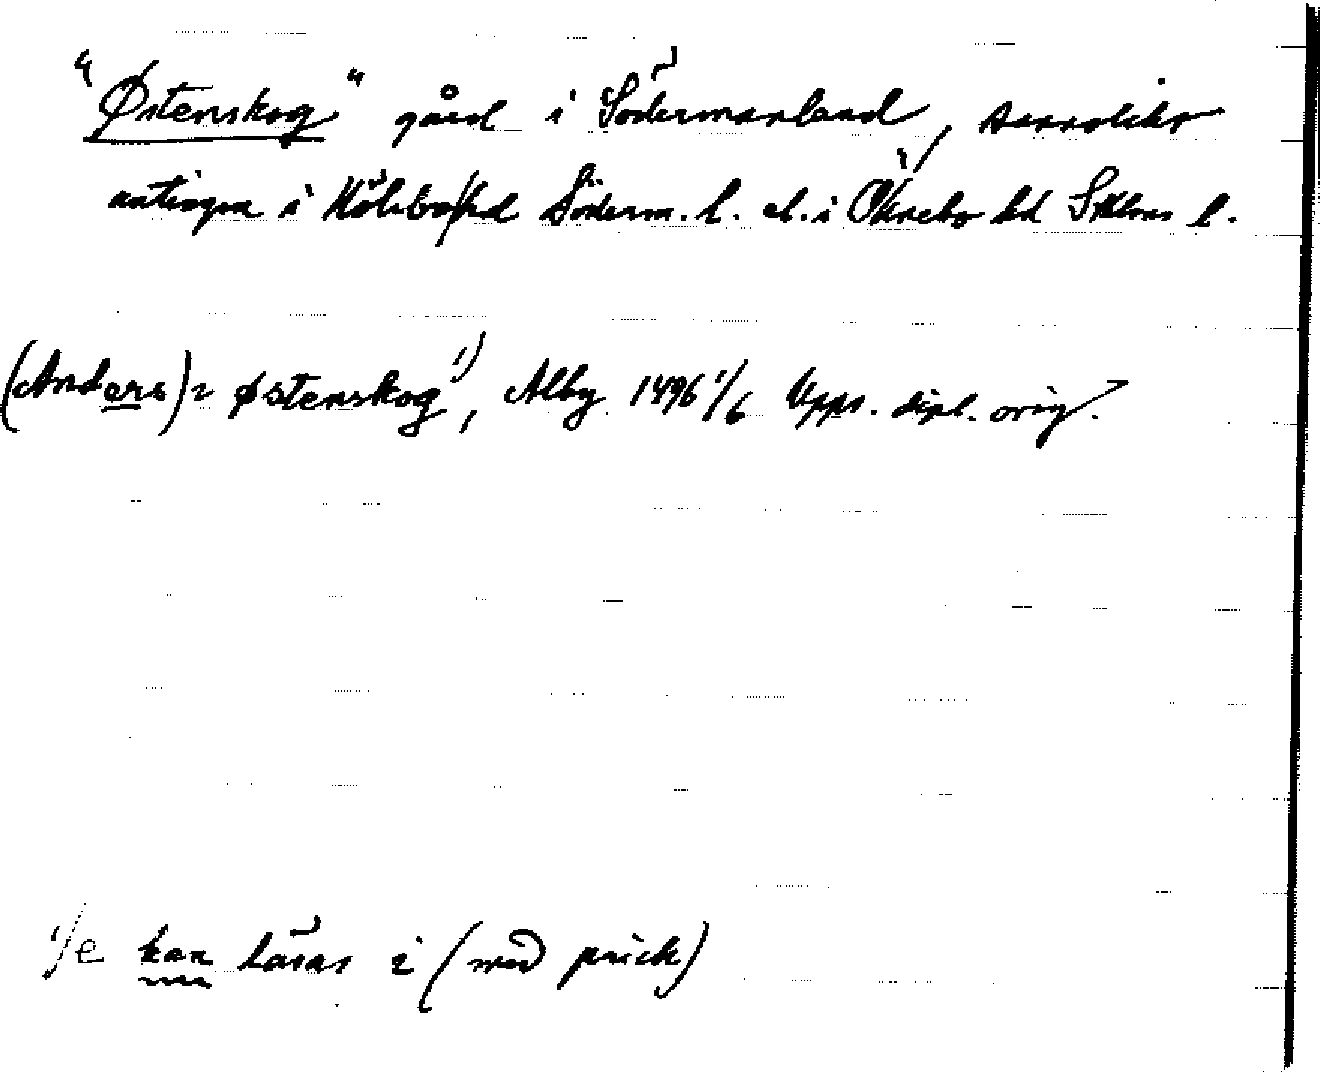 "Østenskog" gård i Södermanland, sannolikt
antingen i Hölebo hd Söderm. l. el. i Öknebo hd Sthlms l.
(Anders) i østenskog 1), Alby 1496 1/6 Upps. dipl. orig.
1) e kan läsas i (med prick)